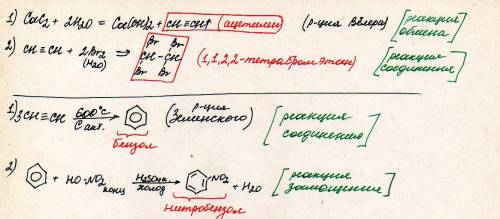 1) CaC₂ + 2H₂O = Ca(OH)₂ + CH≡CH↑ (ацетилен) (р-ция Вёлера) [реакция обмена]
2) CH≡CH + 2Br₂ (H₂O) ⇒ Br Br CH-CH Br Br (1,1,2,2-тетрабромэтан) [реакция соединения]
1) 3CH≡CH 600°C C акт. (р-ция Зелинского) [реакция соединения]
бензол
2) + HO-NO₂ конц H₂SO₄ к холод NO₂ + H₂O [реакция замещения]
нитробензол